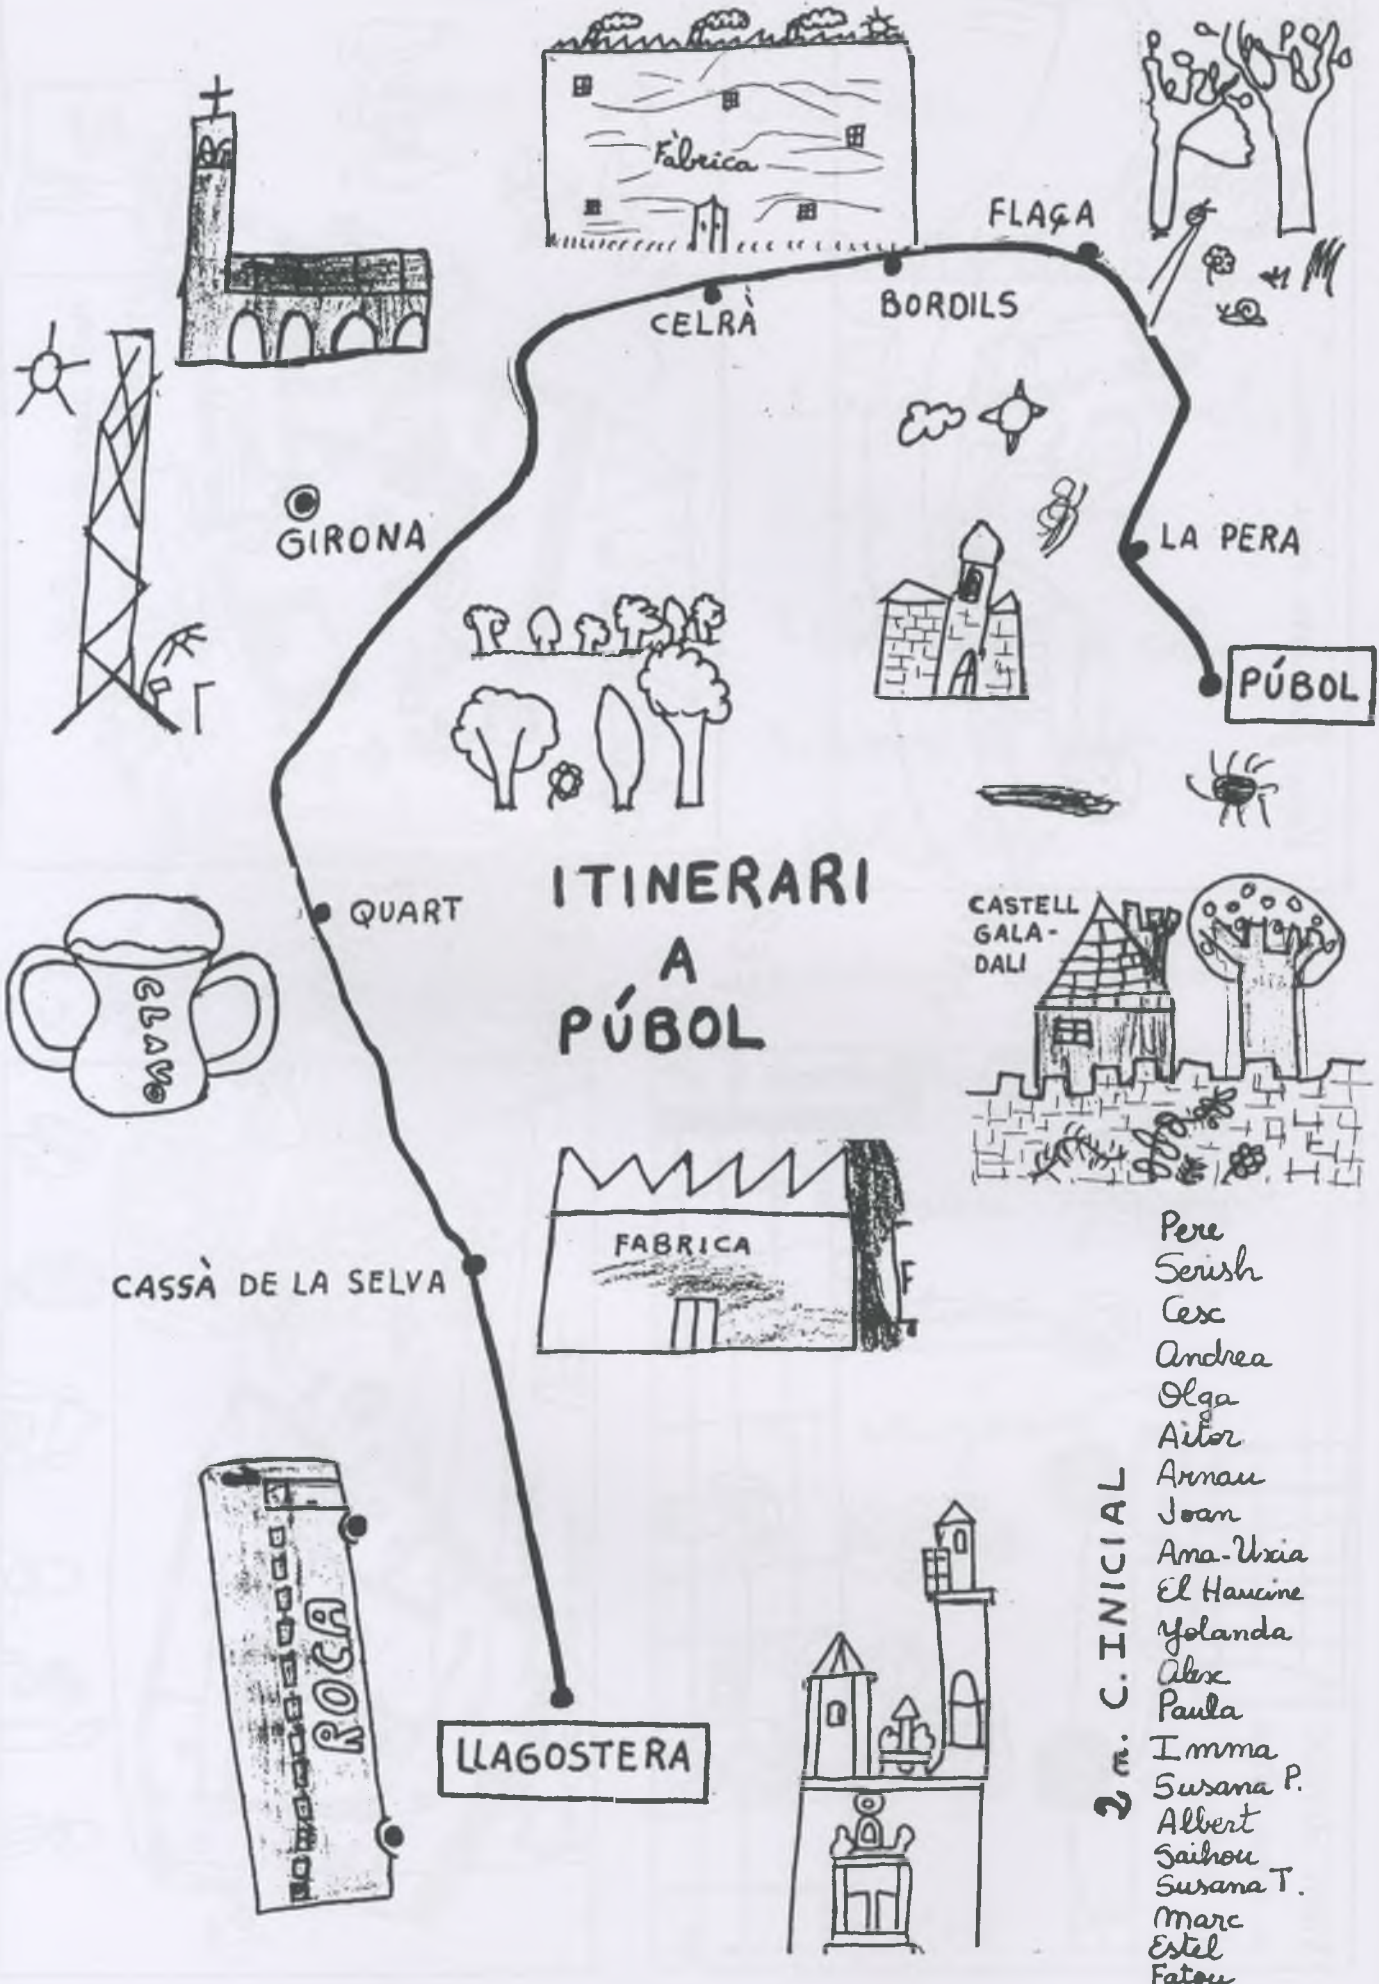 Fàbrica
FLAÇA
CELRÀ
BORDILS
GIRONA
LA PERA
PÚBOL
QUART
ITINERARI
A
PÚBOL
CASTELL
GALA-
DALI
FABRICA
CASSÀ DE LA SELVA
ROCA
LLAGOSTERA
2n. C. INICIAL
Pere
Serish
Cesc
Andrea
Olga
Aitor
Arnau
Joan
Ana-Uxia
El Haucine
Yolanda
Alex
Paula
Imma
Susana P.
Albert
Saihou
Susana T.
Marc
Estel
Fatou